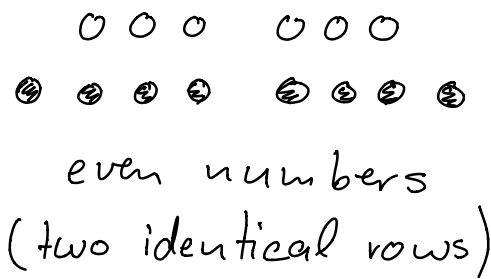 even numbers
(two identical rows)